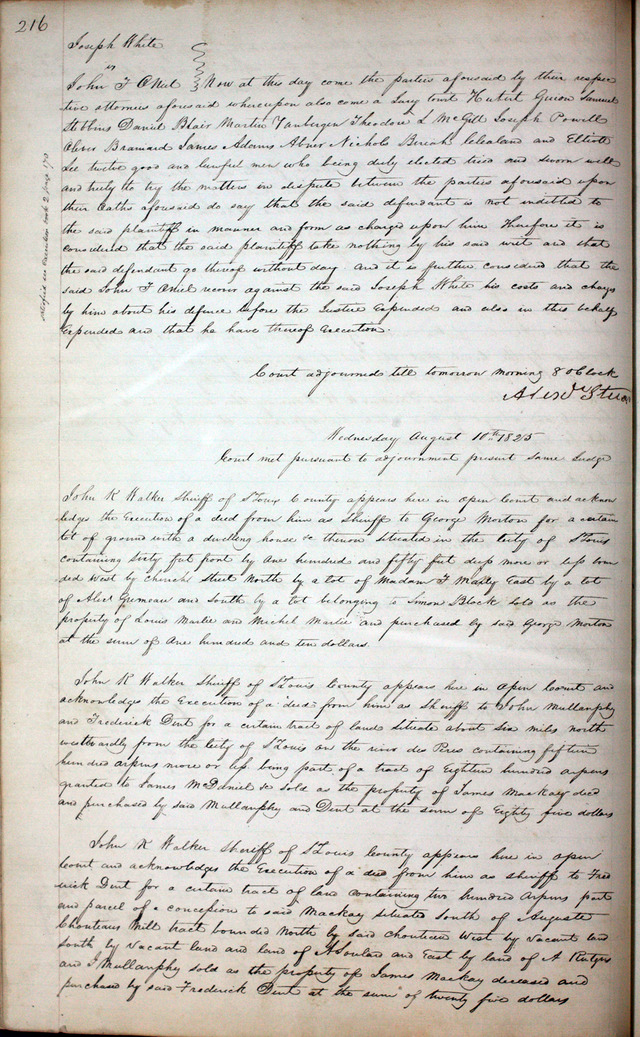 216
Joseph White
vs
John T ONeil } Now at this day come the parties aforesaid by their respec
tive attornies aforesaid whereupon also come a Jury towit Hubert Guion Samuel
Stebbins Daniel Blair Martin Vanbergen Theodore L McGill Joseph Powell
Oliver Brainard James Adams Abner Nichols Cleland and Elliott
Lee twelve good and lawful men who being duly elected tried and sworn well
and truly to try the matters in dispute between the parties aforesaid upon
their Oaths aforesaid do say that the said defendant is not indebted to
the said plaintiff in manner and form as charged upon him Therefore it is
considered that the said plaintiff take nothing by his said writ and that
the said defendant go thereof without day And it is further considered that the
said John T ONeil recover against the said Joseph White his costs and charges
by him about his defence before the Justice Expended and also in this behalf
Expended and that he have thereof Execution.
Execution book 2 page 170
Court adjourned till tomorrow morning 8 oClock
Alexdr Stuart
Wednesday August 10th 1825
Court met pursuant to adjournment present same Judge
John K Walker Sheriff of St Louis County appears here in Open Court and acknow
ledges the Execution of a deed from him as Sheriff to George Morton for a certain
lot of ground with a dwelling house &c thereon situated in the City of St Louis
containing Sixty feet front by One hundred and fifty feet deep more or less boun
ded West by church street North by a lot of Madam East by a lot
of Alexr and South by a lot belonging to Simon Block sold as the
property of Louis Marlie and Michel Marlie and purchased by said George Morton
at the sum of One hundred and ten dollars.
John K Walker Sheriff of St Louis County appears here in Open Court and
acknowledges the Execution of a deed from him as Sheriff to John Mullanphy
and Frederick Dent for a certain tract of land situate about six miles north
westwardly from the City of St Louis on the river des Peres containing fifteen
hundred arpens more or less being part of a tract of Eighteen hundred arpens
granted to James McDaniel & sold as the property of James Mackay decd
and purchased by said Mullanphy and Dent at the sum of Eighty five dollars
John K Walker Sheriff of St Louis County appears here in open
Court and acknowledges the Execution of a deed from him as sheriff to Fred
rick Dent for a certain tract of land containing two hundred Arpens part
and parcel of a concession to said Mackay situated South of Auguste
Chouteaus Mill tract bounded North by said Chouteau West by Vacant land
South by Vacant land and land of A Soulard and East by land of A Rutgers
and J Mullanphy sold as the property of James Mackay deceased and
purchased by said Frederick Dent at the sum of twenty five dollars